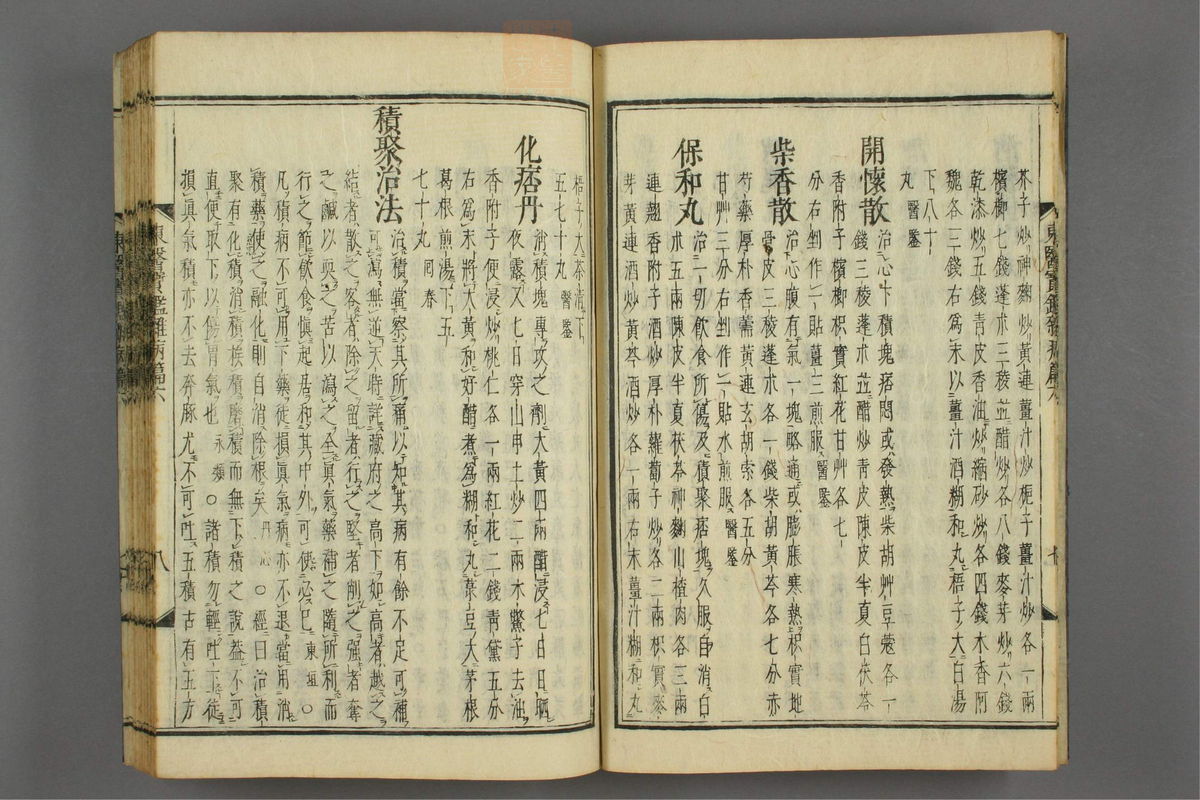 芥子炒神麴炒黃連薑汁炒梔子薑汁炒各一兩
檳榔七錢蓬朮三稜並醋炒各八錢麥芽炒六錢
乾漆炒五錢青皮香油炒硇砂炒各四錢木香阿
魏各三錢右爲末以薑汁酒糊和丸梧子大白湯
下八十
丸醫鑒
開懷散
治心下積塊痞悶或發熱柴胡艸豆蔻各一
錢三稜蓬朮並醋炒青皮陳皮半夏白茯苓
香附子檳榔枳實紅花甘艸各七
分右剉作一貼薑三煎服醫鑒
柴香散
治心腹有氣一塊略通或膨脹寒熱枳實地
骨皮三稜蓬朮各一錢柴胡黃芩各七分赤
芍藥厚朴香薷黃連玄胡索各五分
甘艸三分右剉作一貼水煎服醫鑒
保和丸
治一切飲食所傷及積聚痞塊久服自消白
朮五兩陳皮半夏茯苓神麴山楂肉各三兩
連翹香附子酒炒厚朴蘿蔔子炒各二兩枳實麥
芽黃連酒炒黃芩酒炒各一兩右末薑汁糊和丸
東醫寶鑑雜病篇六
七
梧子大茶淸下
五七十丸醫鑒
化痞丹
消積塊專攻之劑大黃四兩醋浸七日日曬
夜露又七日穿山甲土炒二兩木鱉子去油
香附子便浸炒桃仁各一兩紅花二錢靑黛五分
右爲末將大黃和好醋煮爲糊和丸菉豆大茅根
葛根煎湯下五
七十丸回春
積聚治法
治積當察其所痛以知其病有餘不足可補
可瀉無逆天時詳藏府之高下如高者越之
結者散之客者除之留者行之堅者削之强者奪
之鹹以耎之苦以瀉之全眞氣藥補之隨所利而
行之節飮食愼起居和其中外可使必已東垣○
凡積病不可用下藥徒損眞氣病亦不退當用消
積藥使之融化則自消除根矣丹心○經曰治積
聚有化積消積候積磨積而無下積之說盖不可
直便取下以傷胃氣也永類○諸積勿輕吐下徒
損眞氣積亦不去奔豚尤不可吐五積古有五方
東醫寶鑑雜病篇六
八